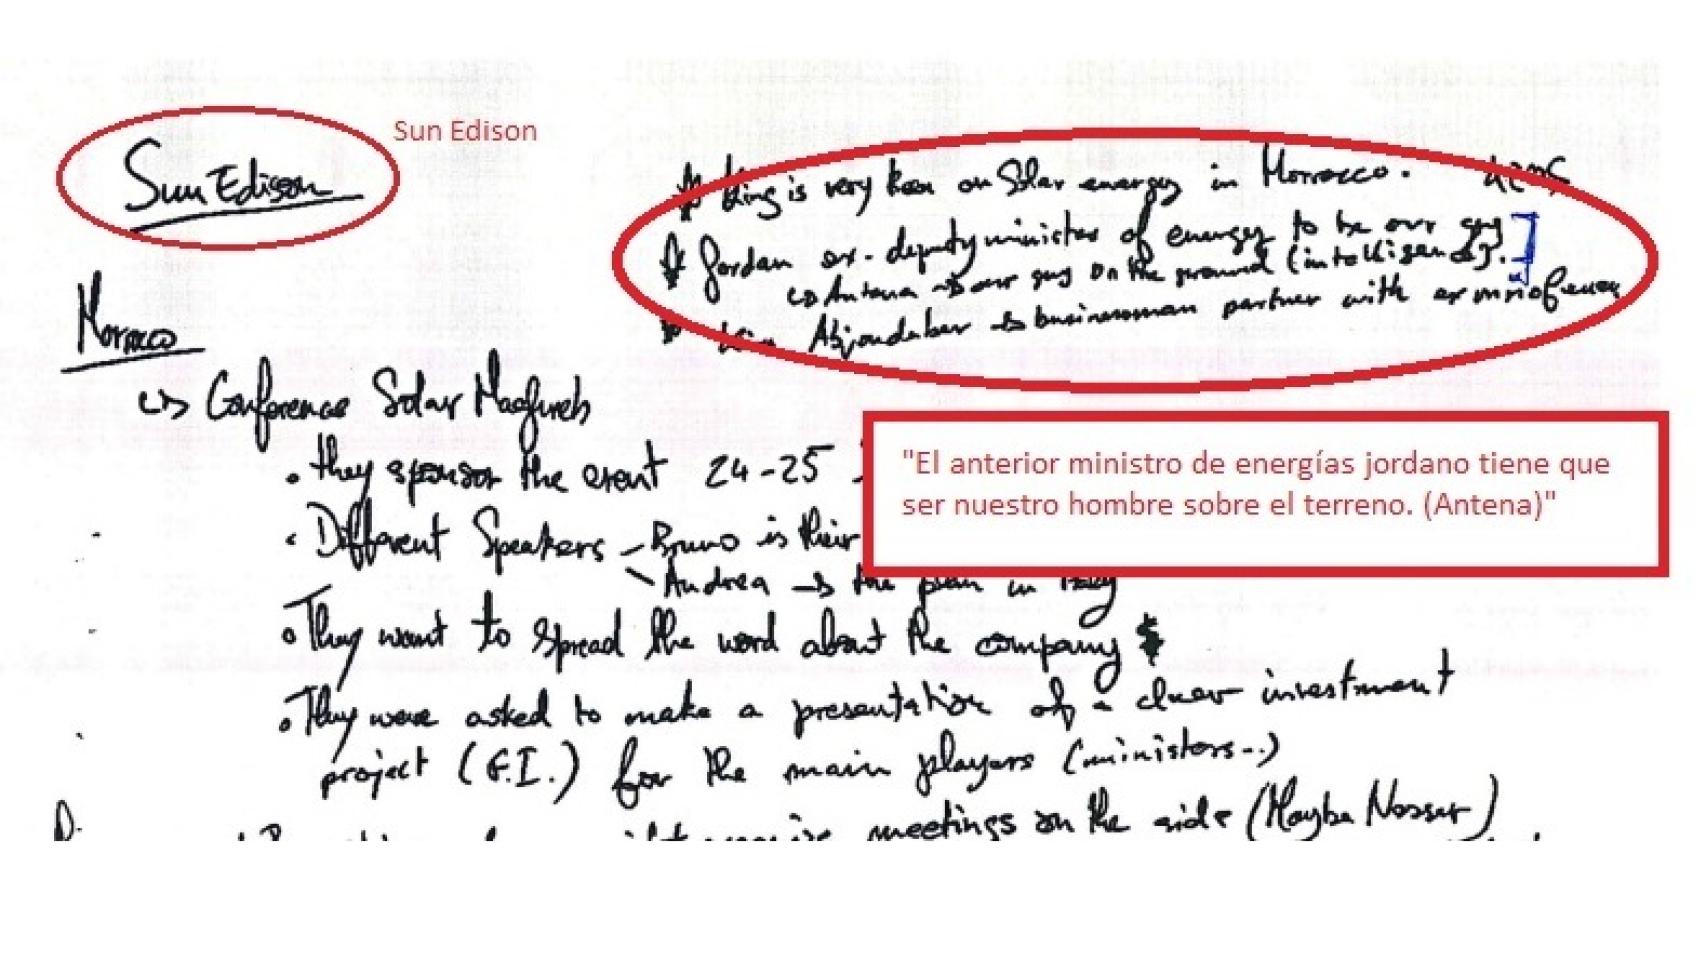 Sun Edison
Sun Edison
King is very keen on Solar energy in Morrocco.
Jordan ex-deputy minister of energy to be our guy
Antena → our guy on the ground (intelligence).
→ businessman partner with ex min of
Morroco
↳ Conference Solar Maghreb
• they sponsor the event 24-25
• Different Speakers - Bruno is their
Andrea → the
"El anterior ministro de energías jordano tiene que
ser nuestro hombre sobre el terreno. (Antena)"
• They want to spread the word about the company
• They were asked to make a presentation of a investment
project (F.I.) for the main players (ministers..)
meetings on the side (Maybe Nasser)